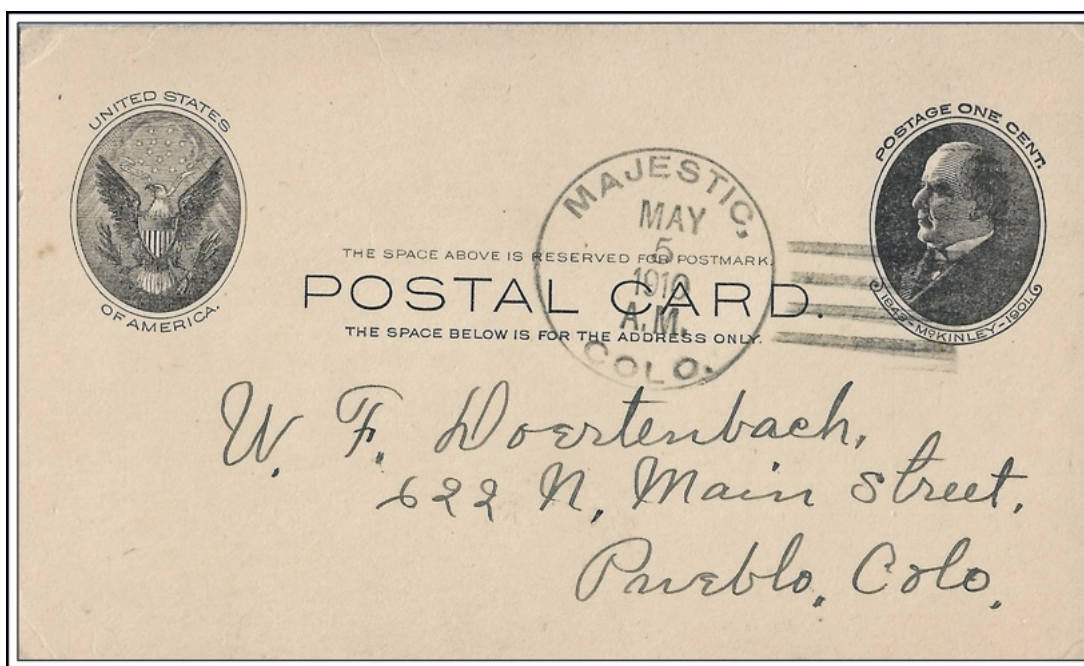 UNITED STATES
OF AMERICA.
POSTAGE ONE CENT.
1843-McKINLEY-1901.
MAJESTIC,
MAY
5
1910
A.M.
COLO.
THE SPACE ABOVE IS RESERVED FOR POSTMARK.
POSTAL CARD.
THE SPACE BELOW IS FOR THE ADDRESS ONLY.
W. F. Doertenbach,
622 N. Main Street,
Pueblo, Colo,